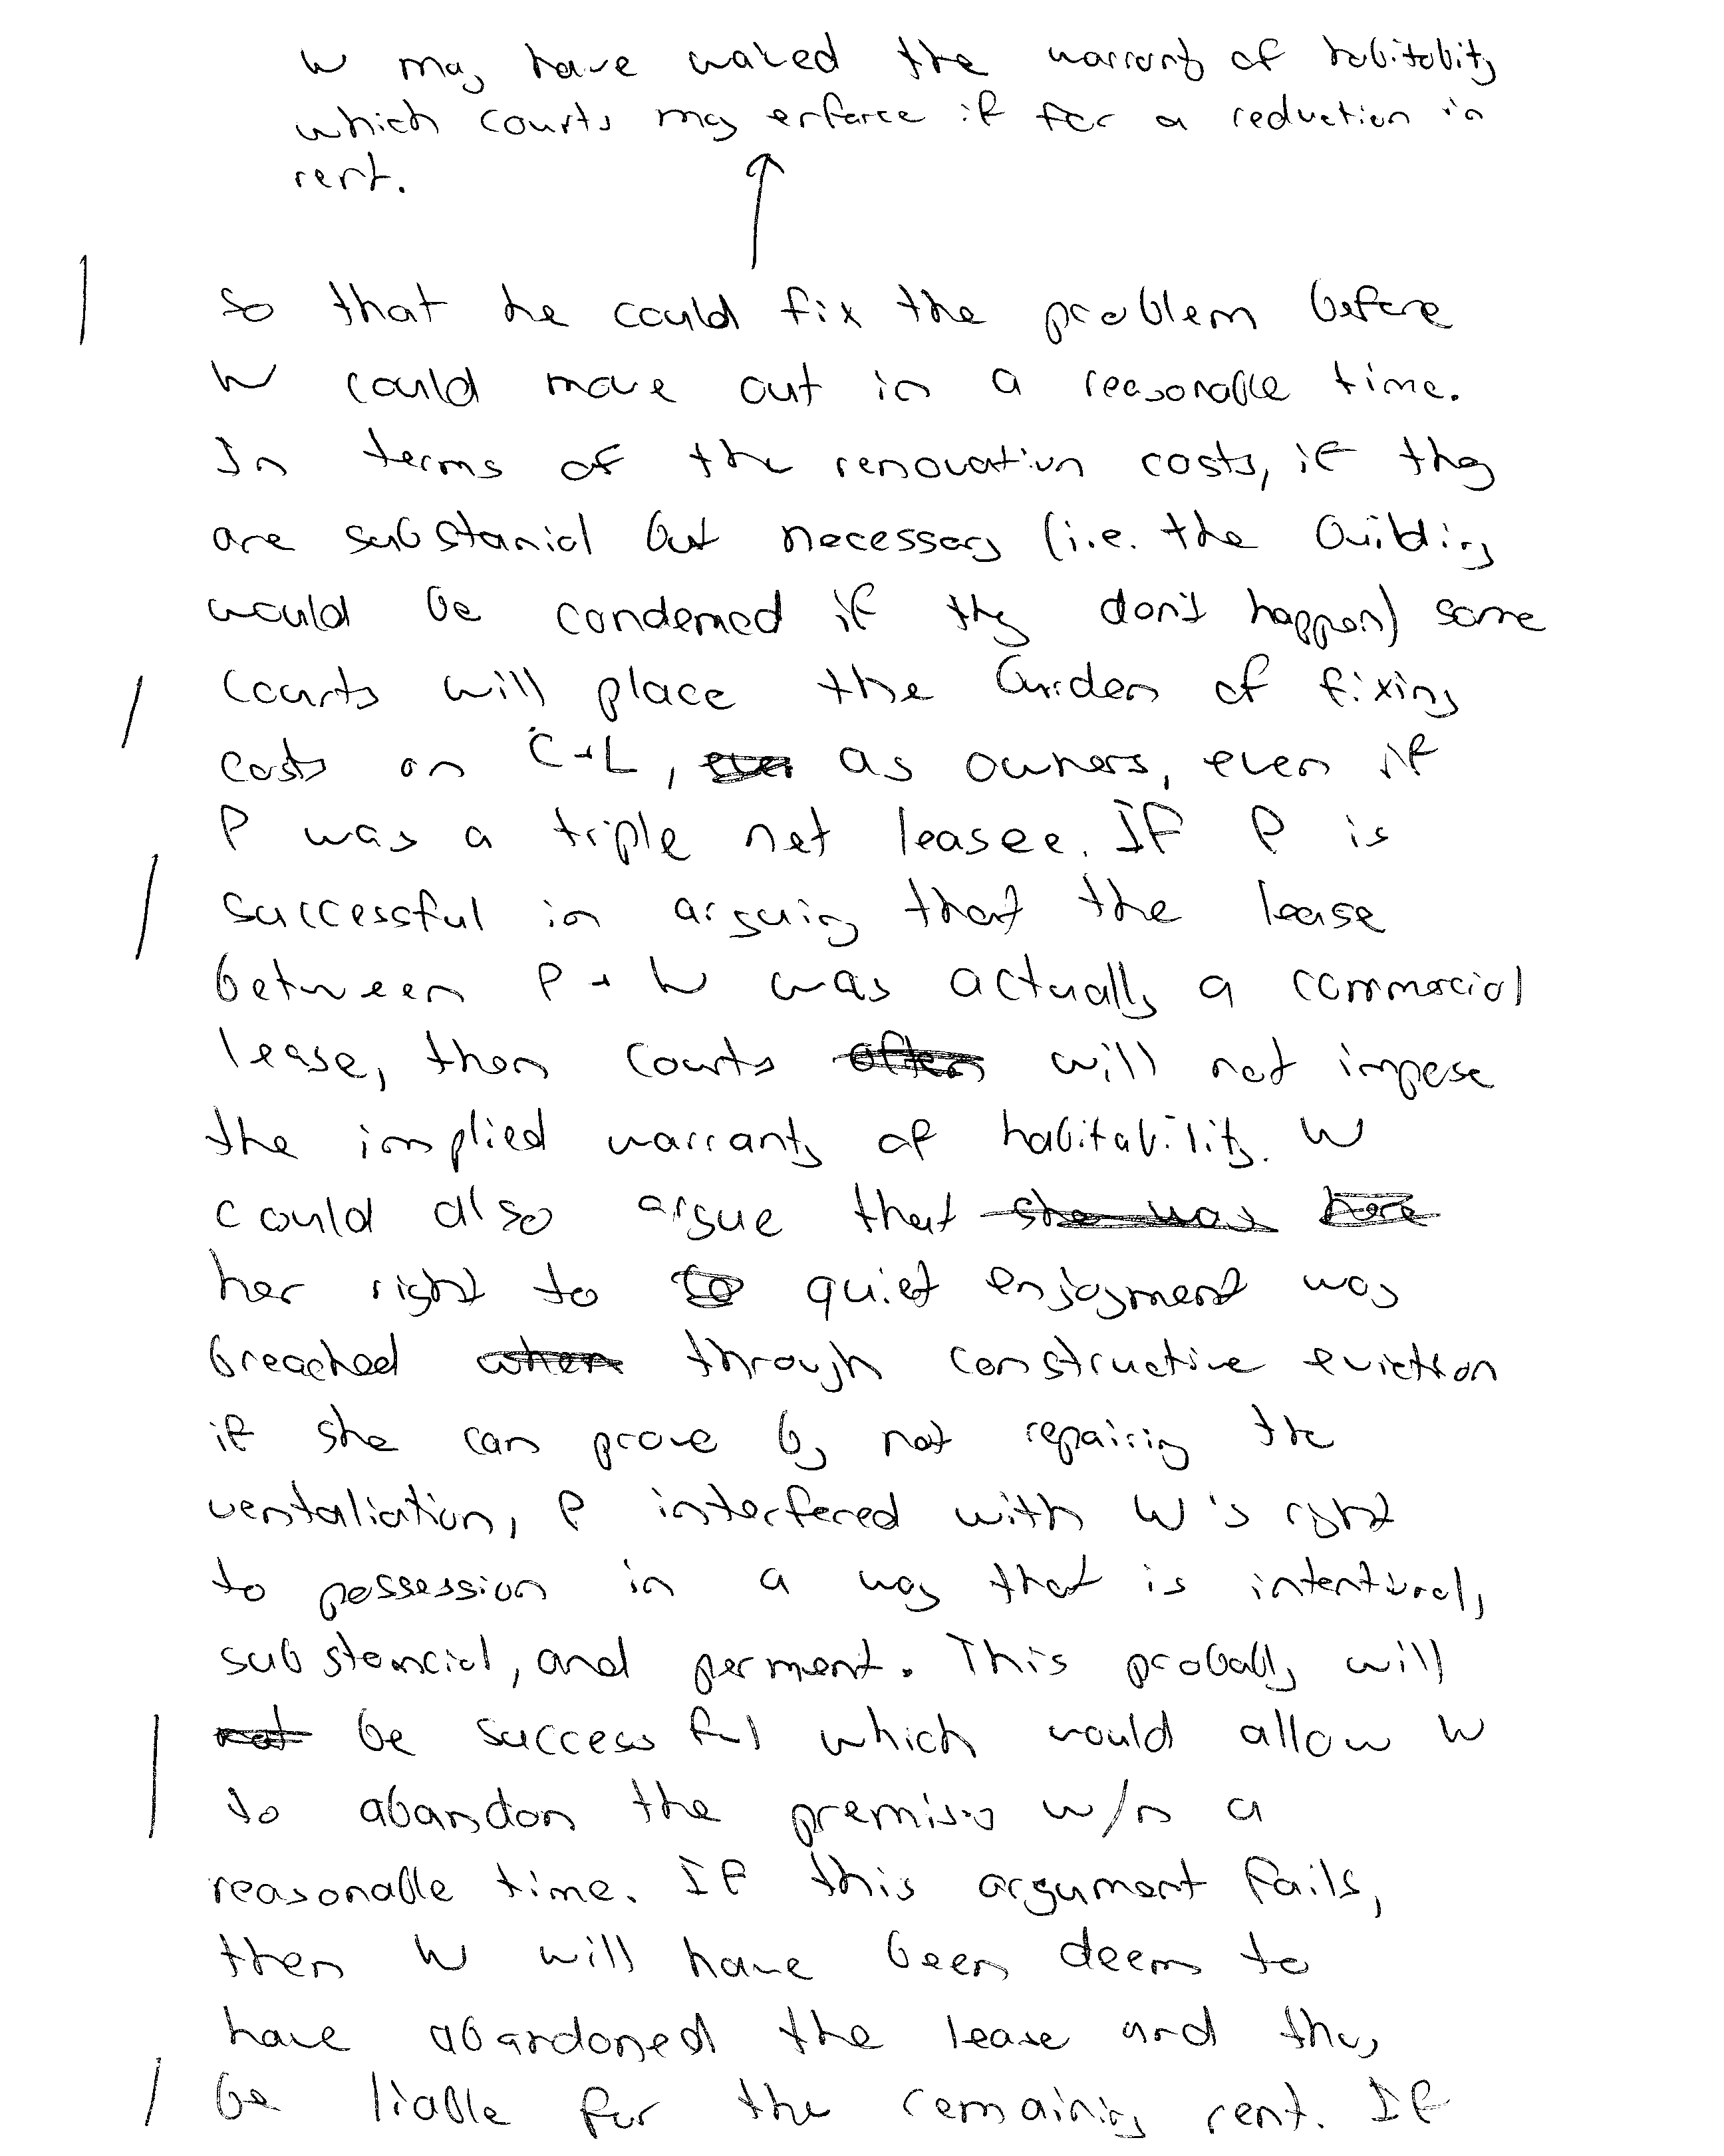 W may have waived the warranty of habitability
which courts may enforce if for a reduction in
rent.
so that he could fix the problem before
W could move out in a reasonable time.
In terms of the renovation costs, if they
are substanial but necessary (i.e. the building
would be condemed if they don't happen) some
courts will place the burden of fixing
costs on C+L, as owners, even if
P was a triple net leasee. If P is
successful in arguing that the lease
between P + W was actually a commercial
lease, then courts often will not impose
the implied warranty of habitability. W
could also argue that she was here
her right to to quiet enjoyment was
breached when through constructive eviction
if she can prove by not repairing the
ventaliation, P interfered with W's right
to possession in a way that is intentional,
substancial, and perment. This probably will
not be successful which would allow W
to abandon the premises w/n a
reasonable time. If this argument fails,
then W will have been deem to
have abandoned the lease and thus
be liable for the remaining rent. If